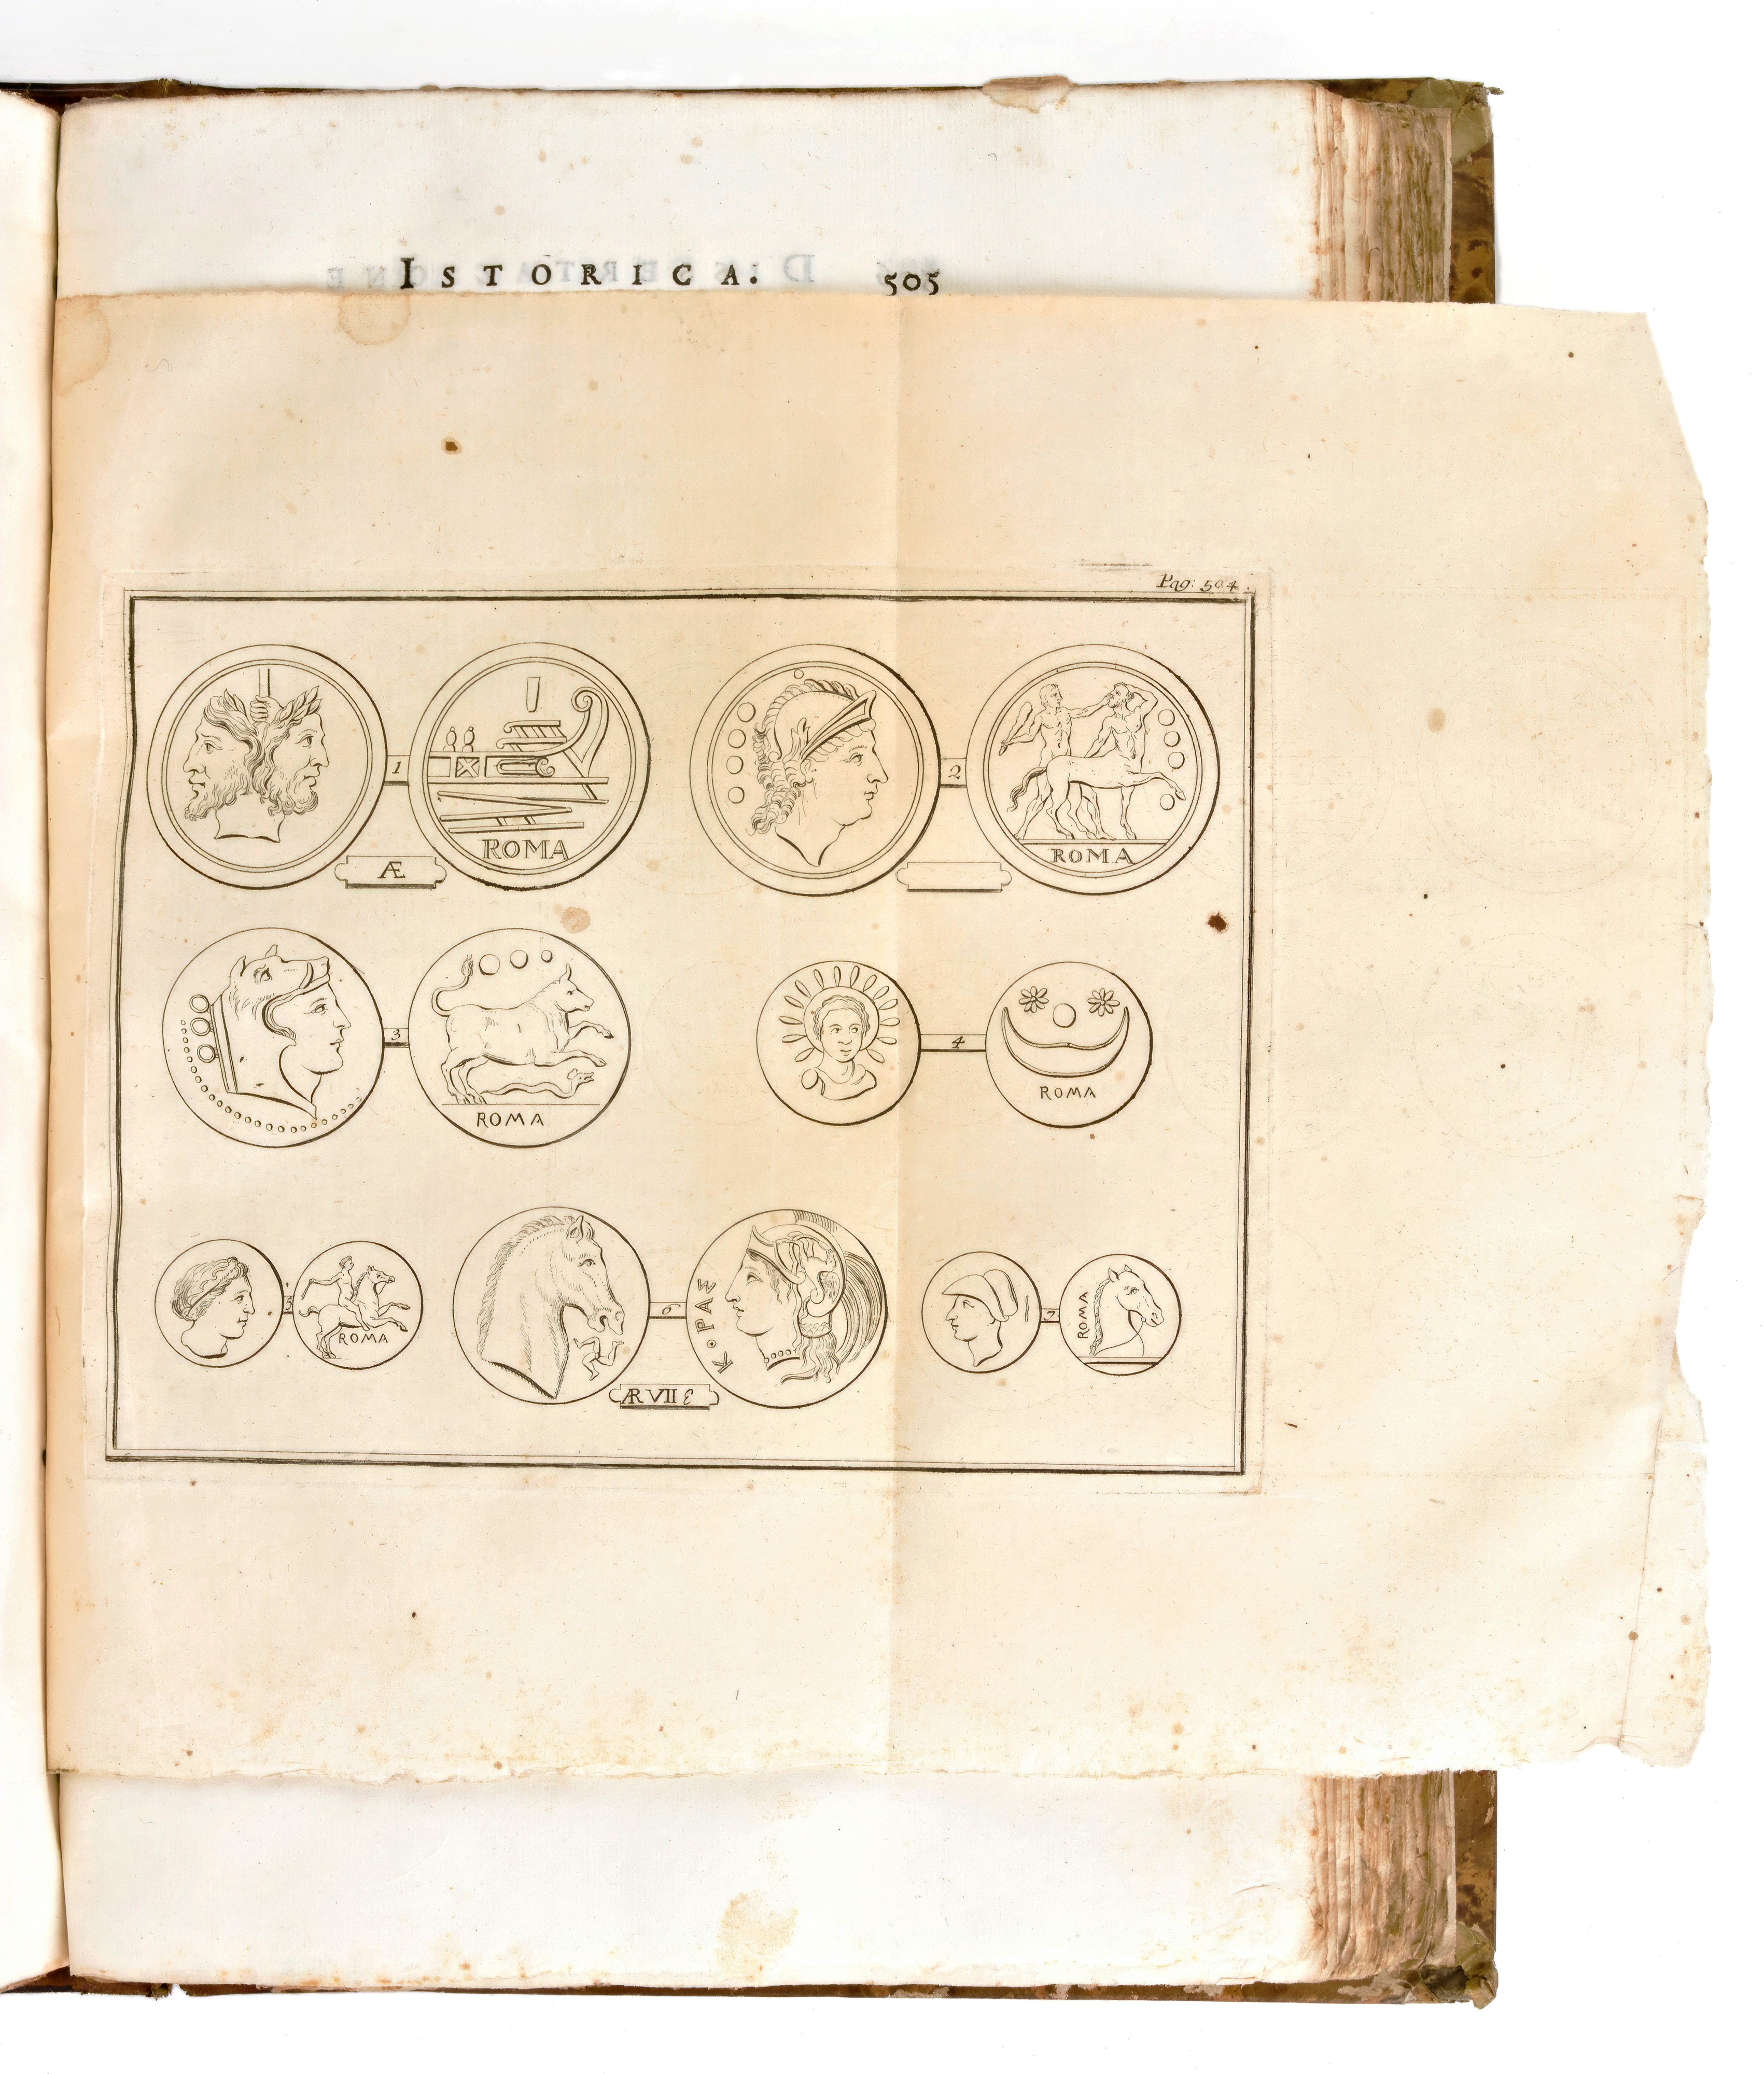 ISTORICA. 505
Pag: 504.
1
2
ROMA
ROMA
Æ
3
4
ROMA
ROMA
5
6
7
ROMA
Κ·ΡΑΣ
ROMA
ÆR VII Ɛ